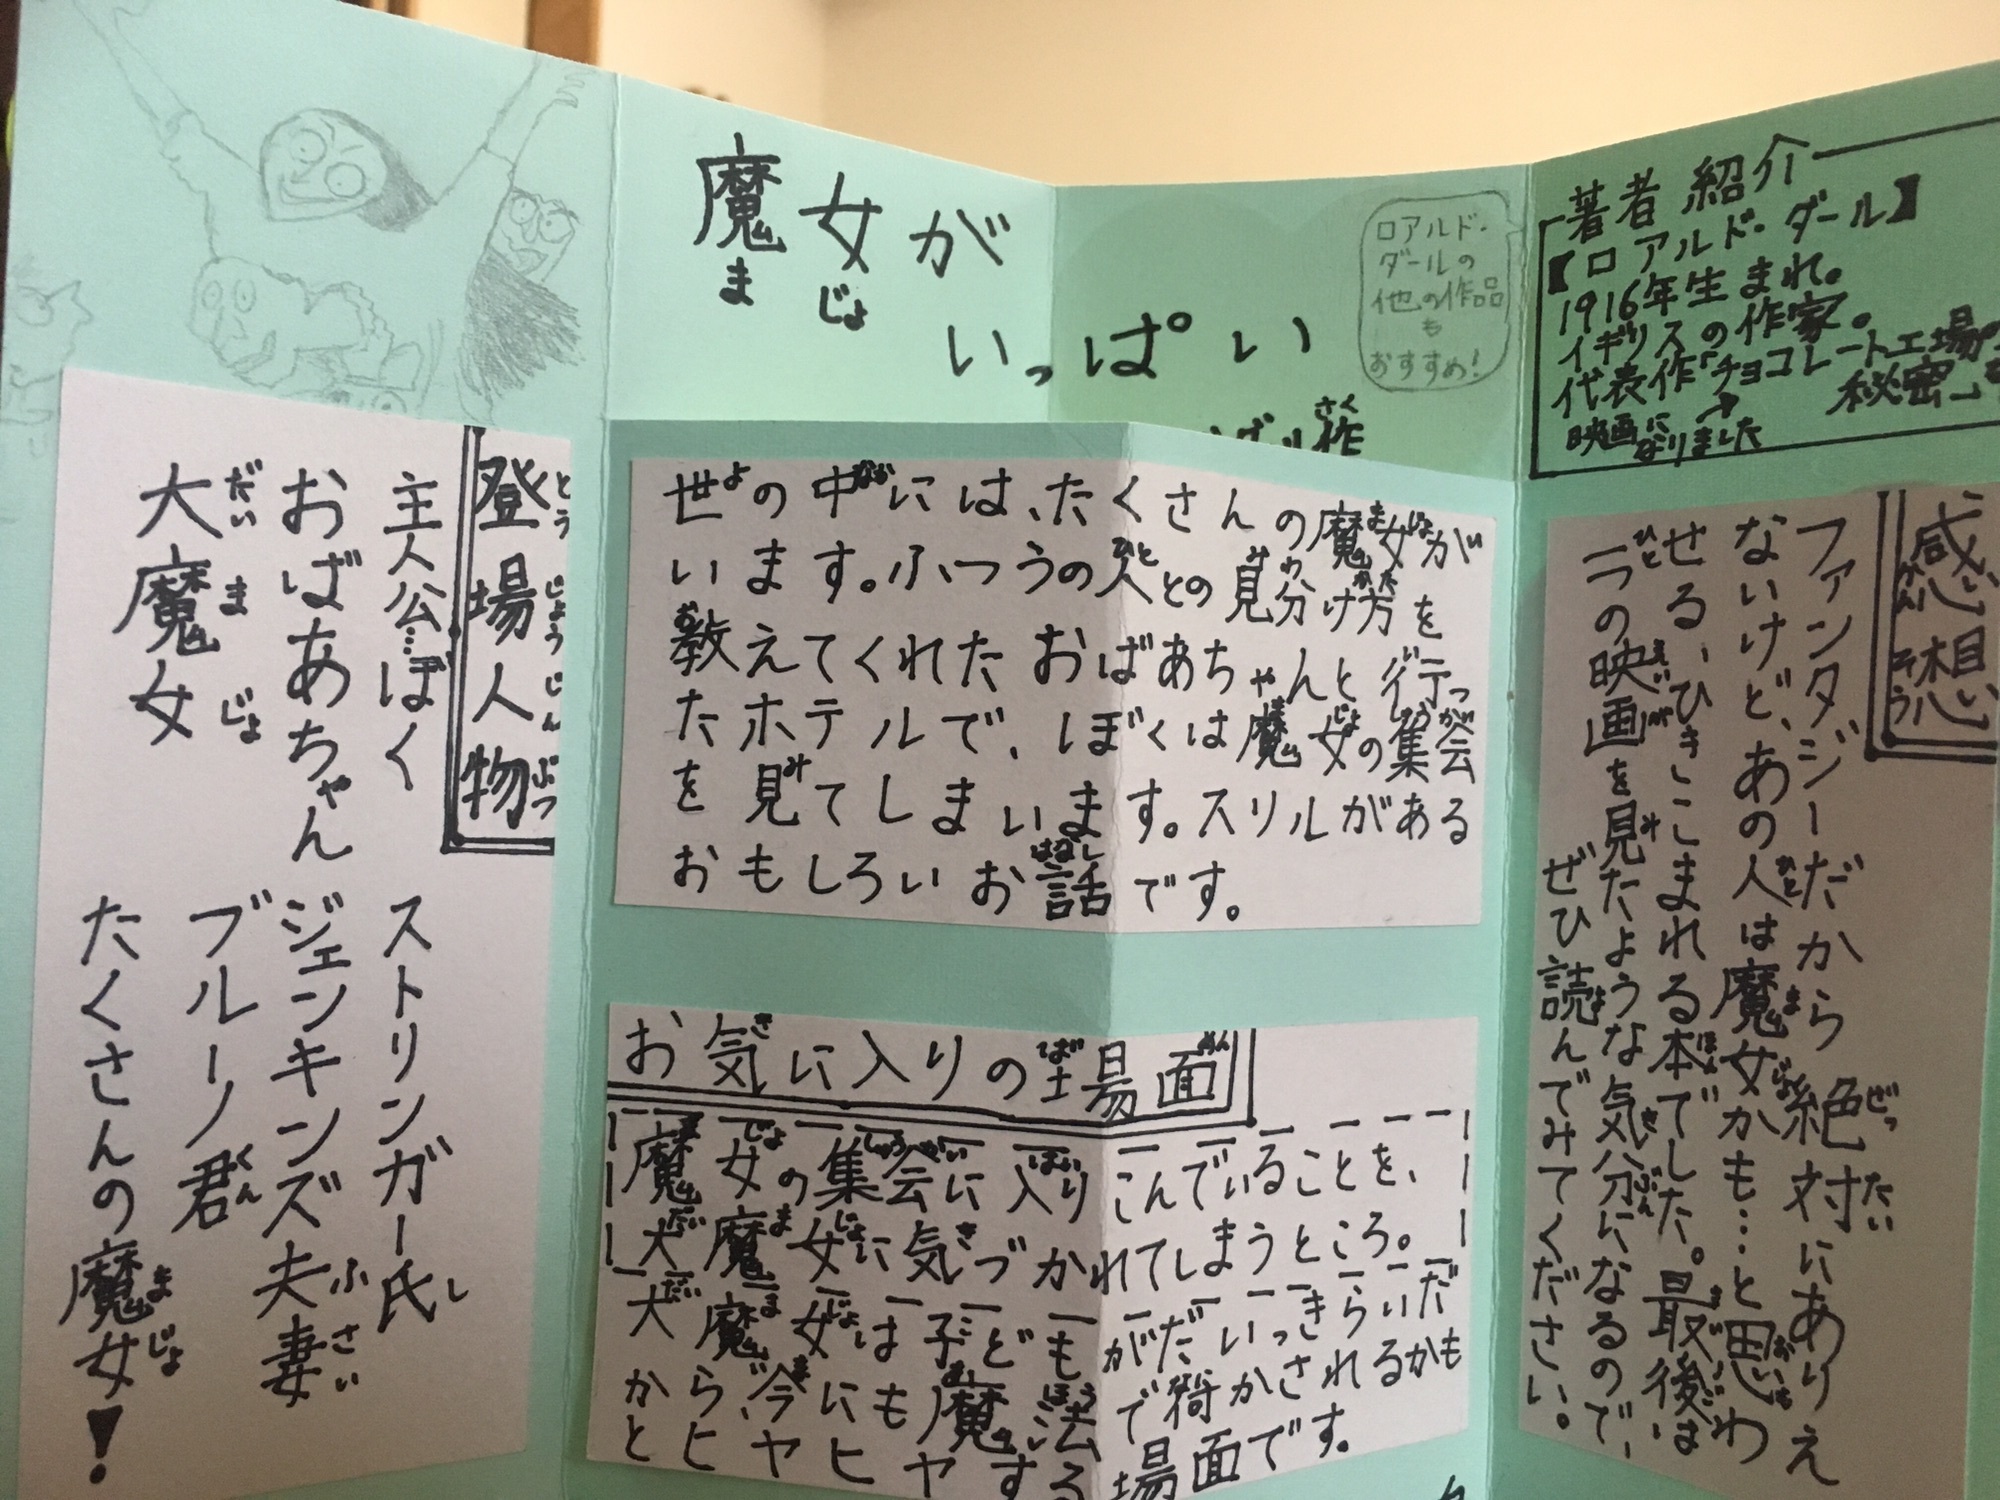 魔女が
まじょ
いっぱい
ロアルド・
ダールの
他の作品
も
おすすめ!
著者紹介
【ロアルド・ダール】
1916年生まれ。
イギリスの作家。
代表作「チョコレート工場の
秘密」
映画になりました
登場人物
とうじょうじんぶつ
主人公…ぼく
おばあちゃん
大魔女
だいまじょ
ストリンガー氏
し
ジェンキンズ夫妻
ふさい
ブルーノ君
くん
たくさんの魔女!
まじょ
世の中には、たくさんの魔女が
います。ふつうの人との見分け方を
教えてくれたおばあちゃんと行っ
たホテルで、ぼくは魔女の集会
を見てしまいます。スリルがある
おもしろいお話です。
お気に入りの場面
魔女の集会に入りこんでいることを、
大魔女に気づかれてしまうところ。
大魔女は子どもがだいっきらいだ
から、今にも魔法で
かされるかも
とヒヤヒヤする場面です。
感想
かんそう
ファンタジーだから絶対にありえ
ないけど、あの人は魔女かも…と思わ
せる、ひきこまれる本でした。最後は
一つの映画を見たような気分になるので、
ぜひ読んでみてください。